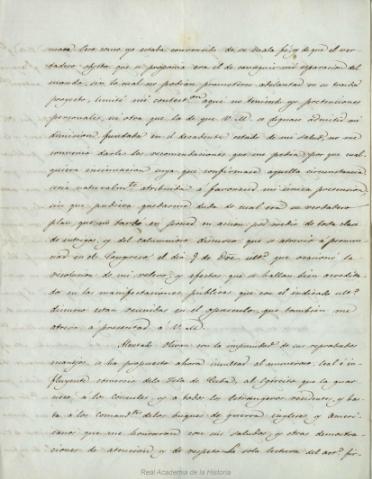 mara. Pero como yo estaba convencido de su mala fé, y de que el ver-
dadero objeto que se proponia era el de conseguir mi separacion del
mando, sin la cual no podian prometerse adelantar en su
proyecto, limité mi contest.on á que no teniendo yo pretenciones
personales, ni otra que la de que V. M. se dignase admitir mi
dimision fundada en el decadente estado de mi salud, no me
convenia darle las recomendaciones que me pedia, por que cual-
quiera insinuacion suya que confirmara aquella circunstancia
seria naturalm.te atribuida á favorecer mi unica pretencion,
sin que pudiera quedarme duda de cual era su verdadero
plan, que no tardó en poner en accion por medio de toda clase
de intrigas, y del discurso que se atrevió á pronun-
ciar en el Congreso el dia 9 de que ocasionó la
resolucion de mi relevo, y efectos que se hallan bien acredita-
dos en las manifestaciones publicas que con el indicado
discurso estan reunidas en el opusculo, que tambien me
atrevo á presentar á V. M.
Olivan con la impunidad de sus reprobados
manejos, se ha propuesto ahora insultar al numeroso, leal é in-
fluyente comercio de la Isla de Cuba, al Ejército que la guar-
nece, á los consules y á todos los estrangeros residentes, y has-
ta á los comand.tes de los buques de guerra ingleses y ameri-
canos que me honraron con sus saludos y otras demostra-
ciones de atencion y de respeto. La sola lectura del art.o fir-
Real Academia de la Historia